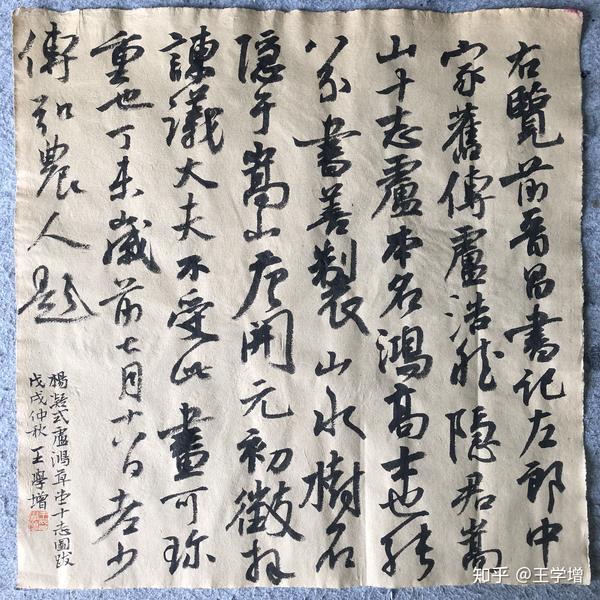 右覽前晉昌書記左郎中
家舊傳盧浩然隱君嵩
山十志盧本名鴻高士也能
八分書善製山水樹石
隱于嵩山唐開元初徵拜
諫議大夫不受此畫可珍
重也丁未歲前七月十八日老少
傅弘農人題
楊凝式盧鴻草堂十志圖跋
戊戌仲秋 王學增
知乎 @王学增